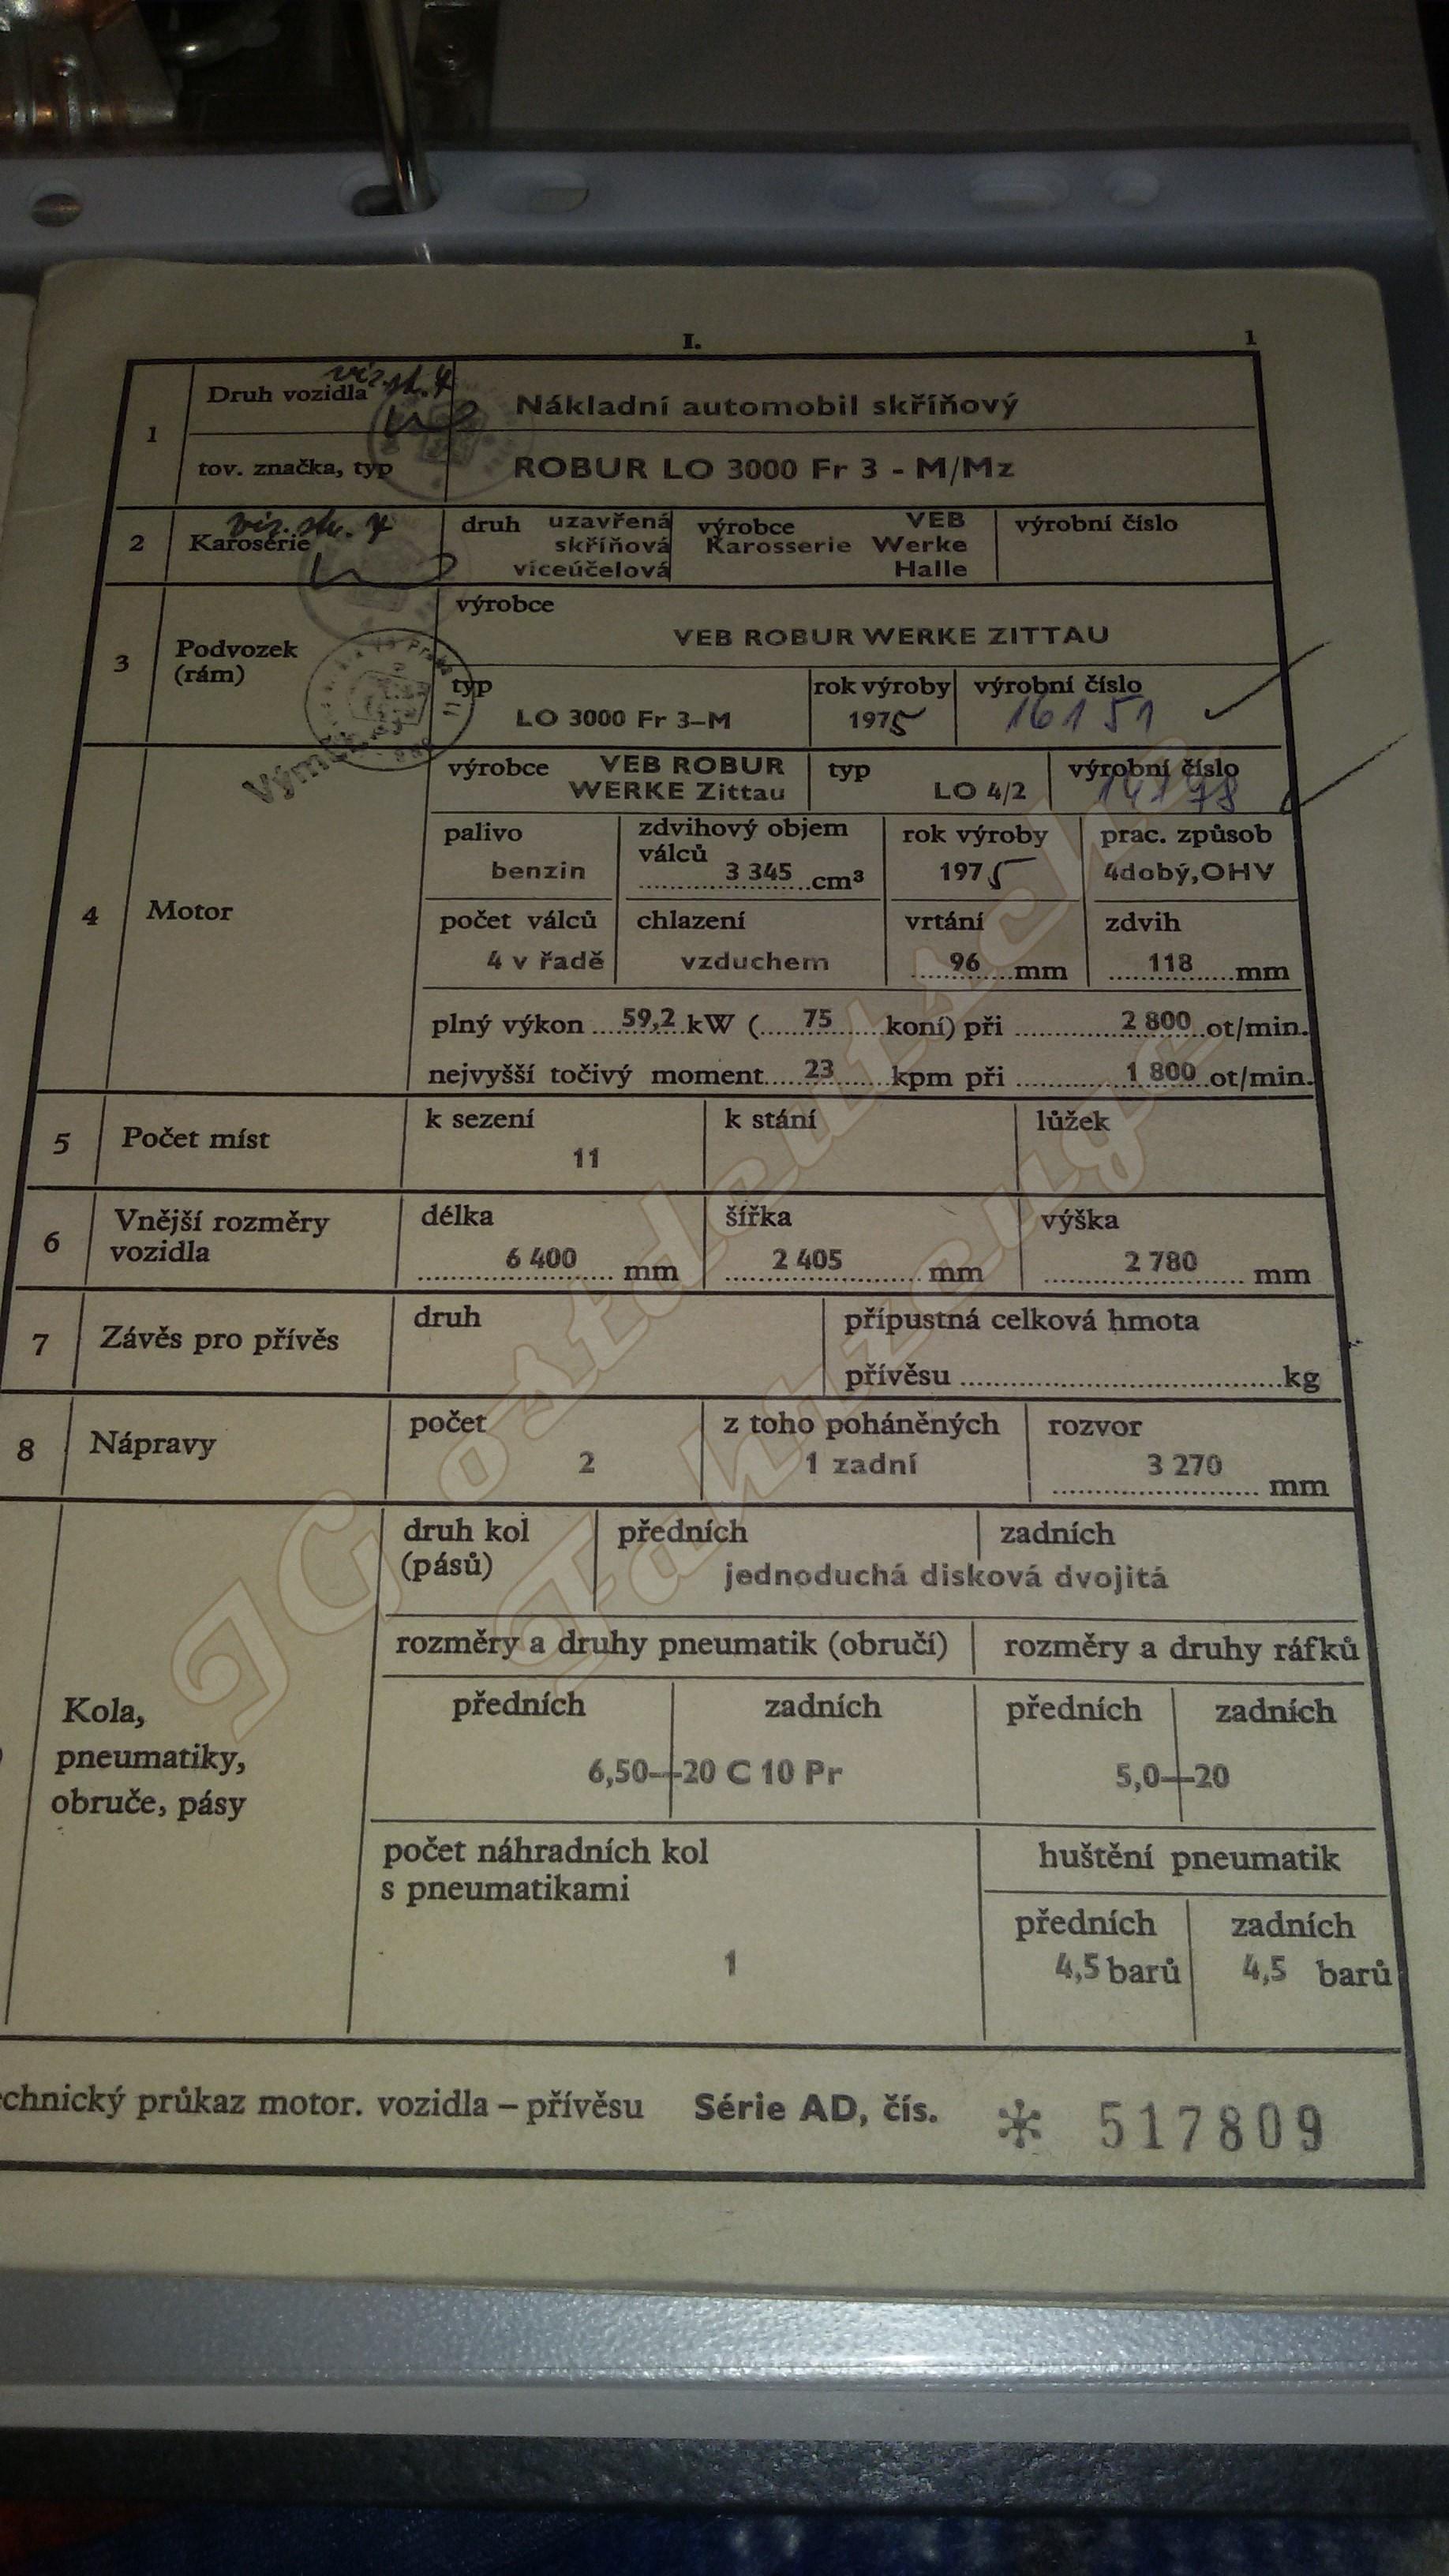 I. 1
1 Druh vozidla viz. str. 4 Nákladní automobil skříňový
tov. značka, typ ROBUR LO 3000 Fr 3 - M/Mz
2 Karoserie viz. str. 4 druh uzavřená výrobce VEB výrobní číslo
skříňová Karosserie Werke
víceúčelová Halle
výrobce
3 Podvozek VEB ROBUR WERKE ZITTAU
(rám)
typ rok výroby výrobní číslo
LO 3000 Fr 3–M 1975 16151
výrobce VEB ROBUR typ výrobní číslo
WERKE Zittau LO 4/2
palivo zdvihový objem rok výroby prac. způsob
válců
benzin 3 345 cm³ 1975 4dobý,OHV
4 Motor
počet válců chlazení vrtání zdvih
4 v řadě vzduchem 96 mm 118 mm
plný výkon 59,2 kW ( 75 koní) při 2 800 ot/min.
nejvyšší točivý moment 23 kpm při 1 800 ot/min.
5 Počet míst k sezení k stání lůžek
11
6 Vnější rozměry délka šířka výška
vozidla 6 400 mm 2 405 mm 2 780 mm
7 Závěs pro přívěs druh přípustná celková hmota
přívěsu kg
8 Nápravy počet z toho poháněných rozvor
2 1 zadní 3 270 mm
druh kol předních zadních
(pásů) jednoduchá disková dvojitá
rozměry a druhy pneumatik (obručí) rozměry a druhy ráfků
Kola, předních zadních předních zadních
pneumatiky, 6,50—20 C 10 Pr 5,0—20
obruče, pásy
počet náhradních kol huštění pneumatik
s pneumatikami
předních zadních
1 4,5 barů 4,5 barů
echnický průkaz motor. vozidla – přívěsu Série AD, čís. * 517809
IG ostdeutsche
Fahrzeuge